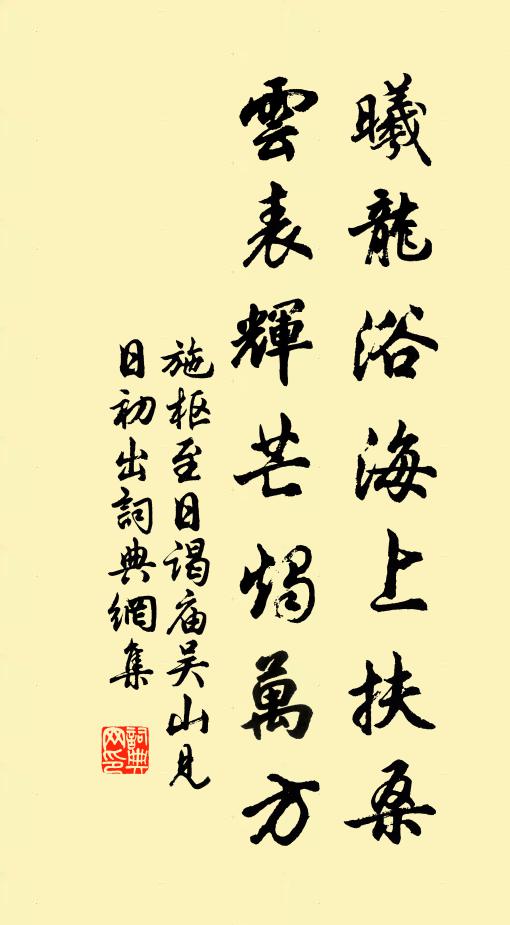 曦龍浴海上扶桑
雲表輝芒燭萬方
施枢至日谒庙吴山見
日初出詞典網集
詞典
网印